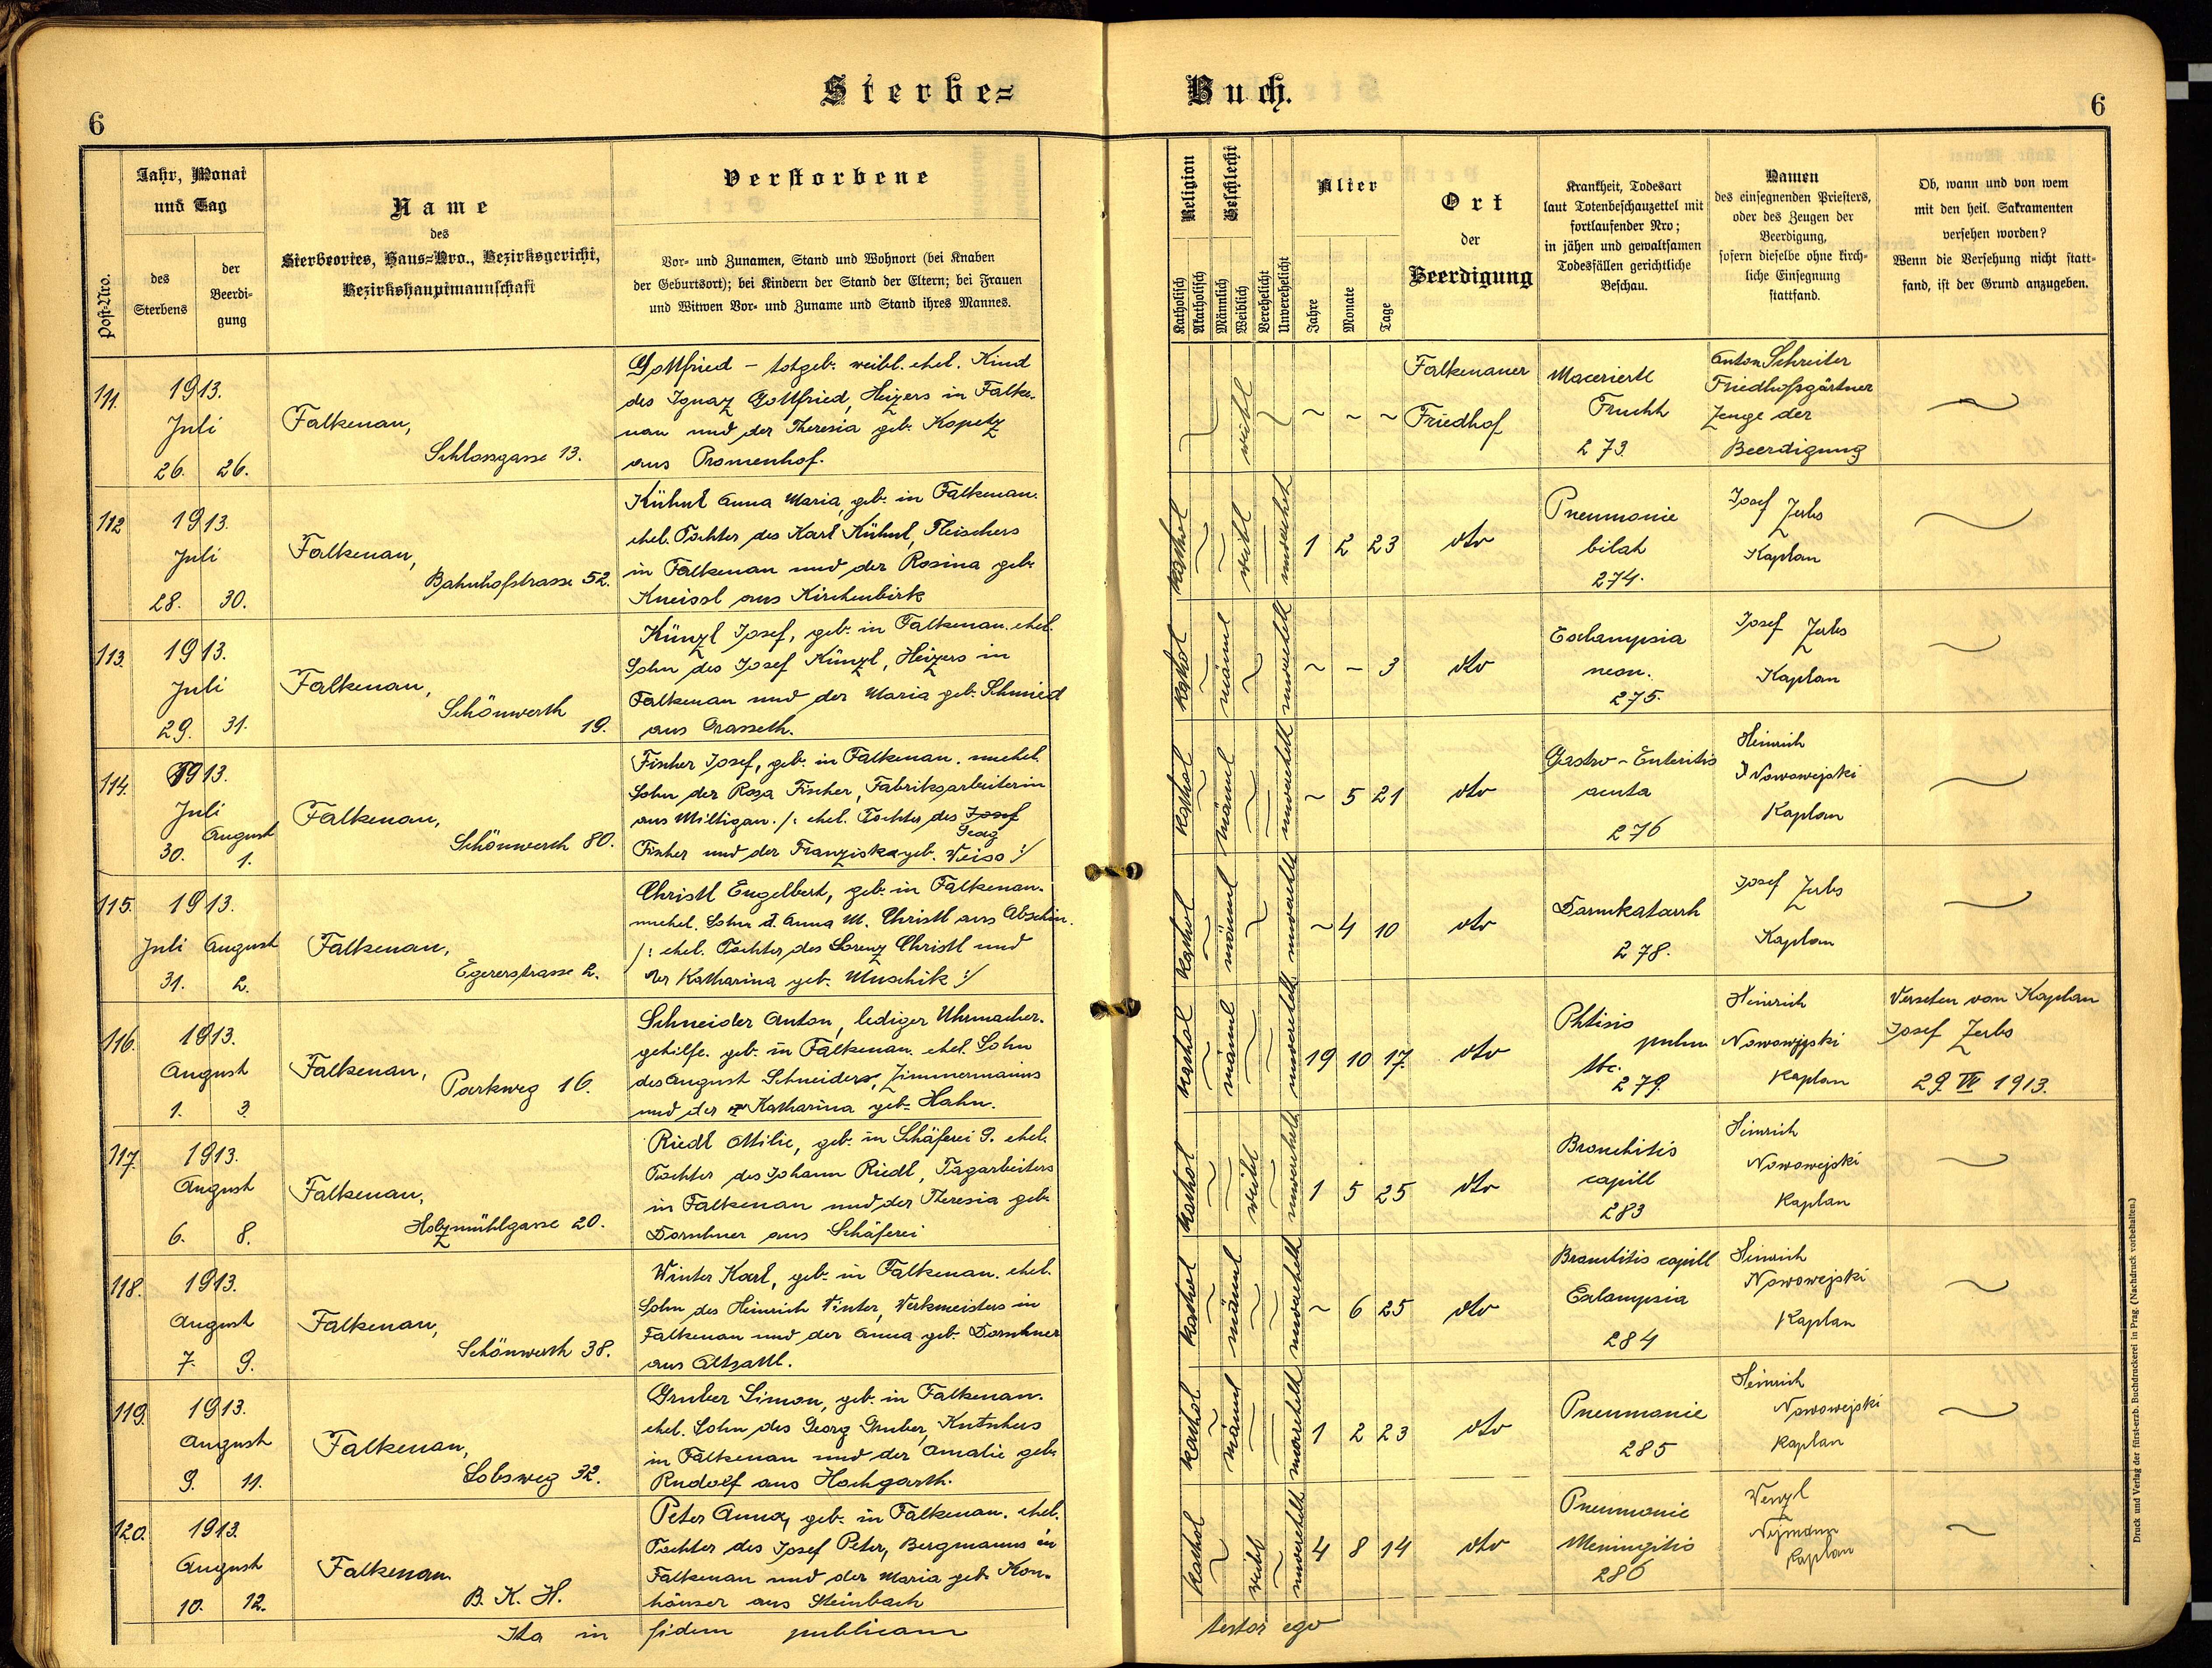 6
Sterbe=
Buch.
6
Post-Nro.
Jahr, Monat
und Tag
des
Sterbens
der
Beerdi-
gung
Name
des
Sterbeortes, Haus=Nro., Bezirksgericht,
Bezirkshauptmannschaft
Verstorbene
Vor- und Zunamen, Stand und Wohnort (bei Knaben
der Geburtsort); bei Kindern der Stand der Eltern; bei Frauen
und Witwen Vor- und Zuname und Stand ihres Mannes.
Religion
Katholisch
Akatholisch
Geschlecht
Männlich
Weiblich
Verehelicht
Unverehelicht
Alter
Jahre
Monate
Tage
Ort
der
Beerdigung
Krankheit, Todesart
laut Totenbeschauzettel mit
fortlaufender Nro;
in jähen und gewaltsamen
Todesfällen gerichtliche
Beschau.
Namen
des einsegnenden Priesters,
oder des Zeugen der
Beerdigung,
sofern dieselbe ohne kirch-
liche Einsegnung
stattfand.
Ob, wann und von wem
mit den heil. Sakramenten
versehen worden?
Wenn die Versehung nicht statt-
fand, ist der Grund anzugeben.
111.
1913.
Juli
26. 26.
Falkenau,
Schlossgasse 13.
Gottfried – totgeb. weibl. ehel. Kind
des Ignaz Gottfried, Heizers in Falke-
nau und der Theresia geb. Kopetz
aus Promenhof.
weibl
~ ~ ~
Falkenauer
Friedhof
Macerierte
Frucht
273.
Anton Schreiter
Friedhofsgärtner
Zeuge der
Beerdigung
112
1913.
Juli
28. 30.
Falkenau,
Bahnhofstrasse 52.
Kühnl Anna Maria, geb. in Falkenau.
ehel. Tochter des Karl Kühnl, Fleischers
in Falkenau und der Rosina geb.
Kneissl aus Kirchenbirk
kathol
weibl
unverehel
1 2 23
dto
Pneumonie
bilat
274.
Josef Zerbs
Kaplan
113.
1913.
Juli
29. 31.
Falkenau,
Schönwerth
19.
Künzl Josef, geb. in Falkenau. ehel.
Sohn des Josef Künzl, Heizers in
Falkenau und der Maria geb. Schmied
aus Grasseth.
kathol
männl
unverehelt
~ – 3
dto
Eclampsia
neon.
275.
Josef Zerbs
Kaplan
114.
1913.
Juli
August
30. 1.
Falkenau,
Schönwerth 80.
Fischer Josef, geb. in Falkenau. unehel.
Sohn der Rosa Fischer, Fabriksarbeiterin
aus Miltigau. /: ehel. Tochter des Josef
Georg
Fischer und der Franziska geb. Weiss :/
kathol
männl
unverehelt
~ 5 21
dto
Gastro-Enteritis
acuta
276
Heinrich
Nowowejski
Kaplan
115.
1913.
Juli August
31. 2.
Falkenau,
Egererstrasse 2.
Christl Engelbert, geb. in Falkenau.
unehel. Sohn d. Anna M. Christl aus
/: ehel. Tochter des Lorenz Christl und
der Katharina geb. Muschik :/
kathol
männl
unverehelt
~ 4 10
dto
Darmkatarrh
278.
Josef Zerbs
Kaplan
116.
1913.
August
1. 3.
Falkenau,
Parkweg 16.
Schneider Anton, lediger Uhrmacher-
gehilfe. geb. in Falkenau. ehel. Sohn
des August Schneiders, Zimmermanns
und der Katharina geb. Hahn.
kathol
männl
unverehelt
19 10 17.
dto
Phtisis
pulm
tbc.
279.
Heinrich
Nowowejski
Kaplan
Versehen von Kaplan
Josef Zerbs
29. VI 1913.
117.
1913.
August
6. 8.
Falkenau,
Holzmühlgasse 20.
Riedl Ottilie, geb. in Schäferei 9. ehel.
Tochter des Johann Riedl, Tagarbeiters
in Falkenau und der Theresia geb.
Dornhner aus Schäferei
kathol
weibl
unverehelt
1 5 25
dto
Bronchitis
capill
283
Heinrich
Nowowejski
Kaplan
118.
1913.
August
7. 9.
Falkenau,
Schönwerth 38.
Winter Karl, geb. in Falkenau. ehel.
Sohn des Heinrich Winter, Werkmeisters in
Falkenau und der Anna geb. Dornhner
aus Altsattl.
kathol
männl
unverehelt
~ 6 25
dto
Bronchitis capill
Eclampsia
284
Heinrich
Nowowejski
Kaplan
119.
1913.
August
9. 11.
Falkenau,
Lobsweg 32.
Gruber Simon, geb. in Falkenau.
ehel. Sohn des Georg Gruber, Kutschers
in Falkenau und der Amalie geb.
Rudolf aus Hochgarth.
kathol
männl
unverehelt
1 2 23
dto
Pneumonie
285
Heinrich
Nowowejski
Kaplan
120.
1913.
August
10. 12.
Falkenau
B. K. H.
Peter Anna, geb. in Falkenau. ehel.
Tochter des Josef Peter, Bergmanns in
Falkenau und der Maria geb. Kon-
häuser aus Steinbach
kathol
weibl
unverehelt
4 8 14
dto
Pneumonie
Meningitis
286
Wenzl
Kaplan
Ita in fidem publicam
testor ego
Druck und Verlag der fürst-erzb. Buchdruckerei in Prag. (Nachdruck vorbehalten.)